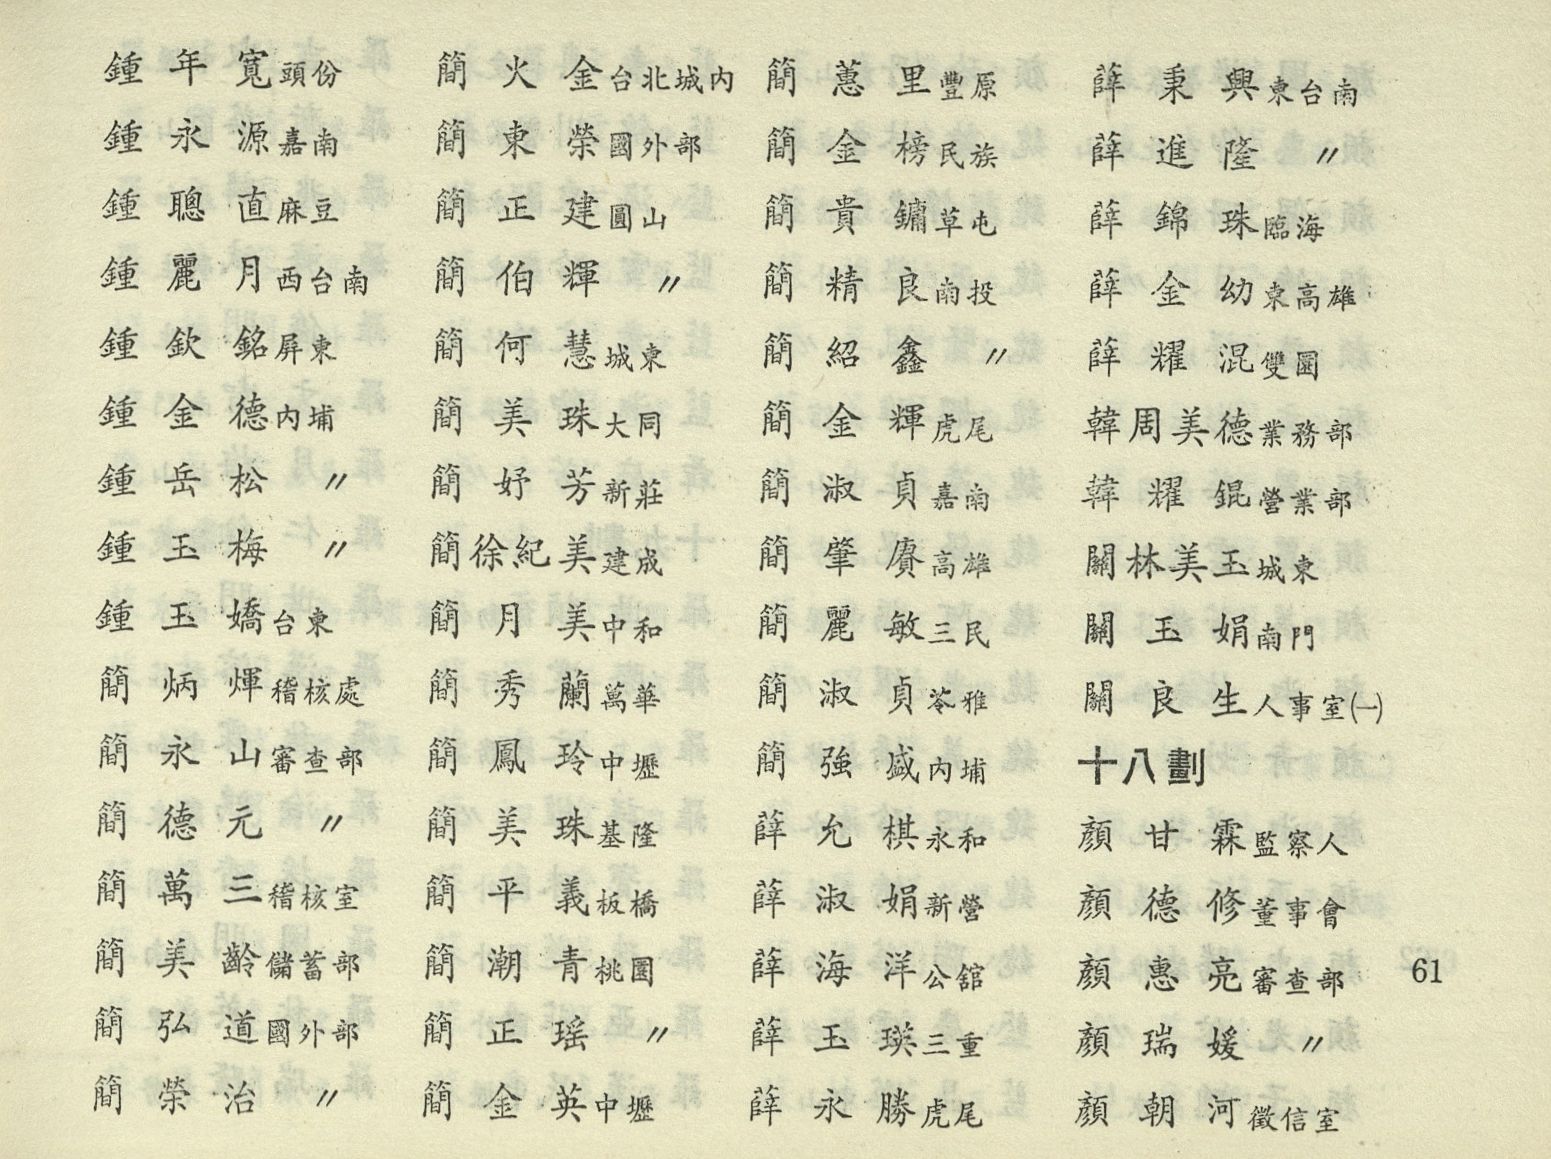 鍾年寬頭份
鍾永源嘉南
鍾聰直麻豆
鍾麗月西台南
鍾欽銘屏東
鍾金德內埔
鍾岳松〃
鍾玉梅〃
鍾玉嬌台東
簡炳煇稽核處
簡永山審查部
簡德元〃
簡萬三稽核室
簡美齡儲蓄部
簡弘道國外部
簡榮治〃
簡火金台北城內
簡東榮國外部
簡正建圓山
簡伯輝〃
簡何慧城東
簡美珠大同
簡妤芳新莊
簡徐紀美建成
簡月美中和
簡秀蘭萬華
簡鳳玲中壢
簡美珠基隆
簡平義板橋
簡潮青桃園
簡正瑤〃
簡金英中壢
簡蕙里豐原
簡金榜民族
簡貴鏞草屯
簡精良南投
簡紹鑫〃
簡金輝虎尾
簡淑貞嘉南
簡肇賡高雄
簡麗敏三民
簡淑貞苓雅
簡強盛內埔
薛允棋永和
薛淑娟新營
薛海洋公館
薛玉瑛三重
薛永勝虎尾
薛秉興東台南
薛進隆〃
薛錦珠臨海
薛金幼東高雄
薛耀混雙園
韓周美德業務部
韓耀錕營業部
關林美玉城東
關玉娟南門
關良生人事室㈠
十八劃
顏甘霖監察人
顏德修董事會
顏惠亮審查部
顏瑞媛〃
顏朝河徵信室
61